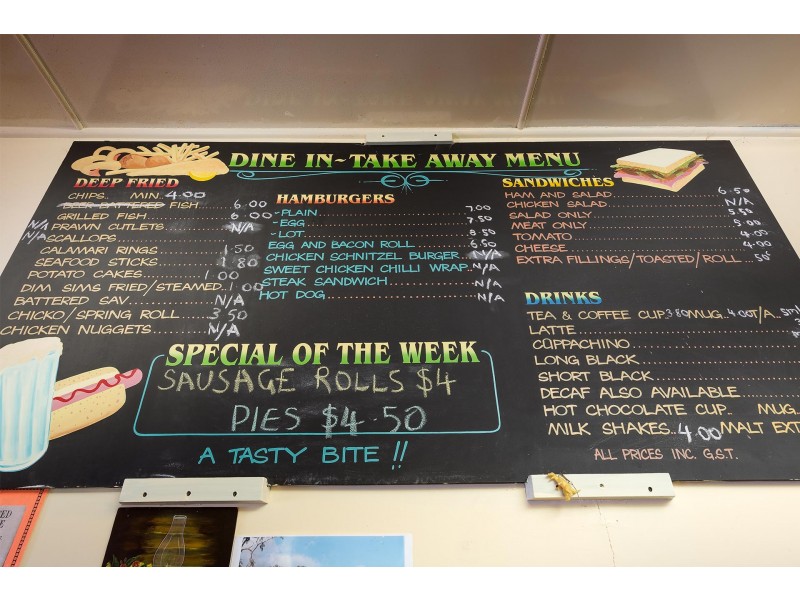 DINE IN~TAKE AWAY MENU
DEEP FRIED
CHIPS.. MIN. 4.00
BEER BATTERED FISH 6.00
GRILLED FISH 6.00
N/A PRAWN CUTLETS N/A
N/A SCALLOPS
CALAMARI RINGS 1.50
SEAFOOD STICKS 1.80
POTATO CAKES 1.00
DIM SIMS FRIED/STEAMED 1.00
BATTERED SAV N/A
CHICKO/SPRING ROLL 3.50
CHICKEN NUGGETS N/A
HAMBURGERS
~PLAIN 7.00
~EGG 7.50
~LOT 8.50
EGG AND BACON ROLL 6.50
CHICKEN SCHNITZEL BURGER N/A
SWEET CHICKEN CHILLI WRAP N/A
STEAK SANDWICH N/A
HOT DOG N/A
SANDWICHES
HAM AND SALAD 6.50
CHICKEN SALAD N/A
SALAD ONLY 5.50
MEAT ONLY 5.00
TOMATO 4.00
CHEESE 4.00
EXTRA FILLINGS/TOASTED/ROLL .50
DRINKS
TEA & COFFEE CUP 3.80 MUG 4.00 T/A
LATTE
CUPPACHINO
LONG BLACK
SHORT BLACK
DECAF ALSO AVAILABLE
HOT CHOCOLATE CUP.. MUG
MILK SHAKES.. 4.00 MALT EXT
ALL PRICES INC. G.S.T.
SPECIAL OF THE WEEK
SAUSAGE ROLLS $4
PIES $4.50
A TASTY BITE !!